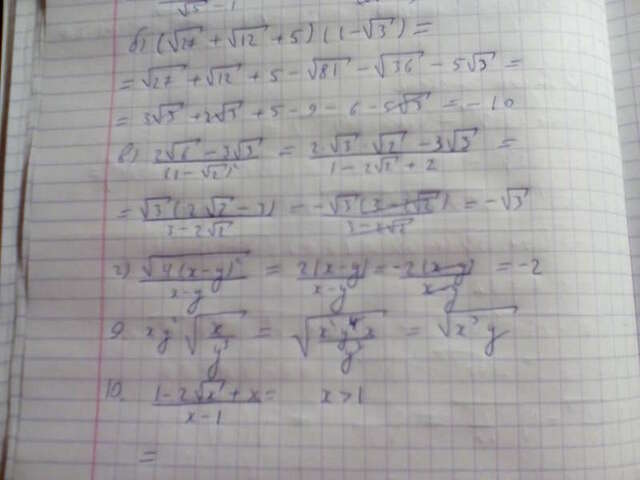 √5 - 1
б) (√27 + √12 + 5)(1 - √3) =
= √27 + √12 + 5 - √81 - √36 - 5√3 =
= 3√3 + 2√3 + 5 - 9 - 6 - 5√3 = -10
в) (2√6 - 3√3)/(1 - √2)² = (2√3·√2 - 3√3)/(1 - 2√2 + 2) =
= √3(2√2 - 3)/(3 - 2√2) = -√3(3 - 2√2)/(3 - 2√2) = -√3
г) √(4(x-y)²)/(x-y) = 2(x-y)/(x-y) = -2(x-y)/(x-y) = -2
9. xy²√(x/y³) = √(x²y⁴x/y³) = √(x³y)
10. (1 - 2√x + x)/(x-1) = x > 1
=